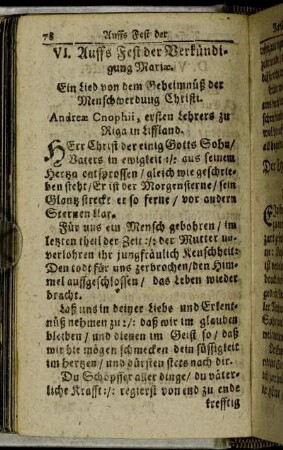 78 Auffs Fest der
VI. Auffs Fest der Verkündi-
gung Mariæ.
Ein Lied von dem Geheimnüß der
Menschwerdung Christi.
Andreæ Cnophii, ersten Lehrers zu
Riga in Liffland.
HErr Christ der einig Gotts Sohn/
Vaters in ewigkeit :/: aus seinem
Hertzn entsprossen / gleich wie geschrie-
ben steht / Er ist der Morgensterne / sein
Glantz streckt er so ferne / vor andern
Sternen klar.
Für uns ein Mensch gebohren / im
letzten theil der Zeit :/: der Mutter un-
verlohren ihr jungfräulich Keuschheit:
Den todt für uns zerbrochen / den Him-
mel auffgeschlossen / das Leben wieder
bracht.
Laß uns in deiner Liebe und Erkent-
nüß nehmen zu :/: daß wir im glauben
bleiben / und dienen im Geist so / daß
wir hie mögen schmecken dein süssigkeit
im hertzen / und dürsten stets nach dir.
Du Schöpffer aller dinge / du väter-
liche Krafft :/: regierst von end zu ende
krefftig